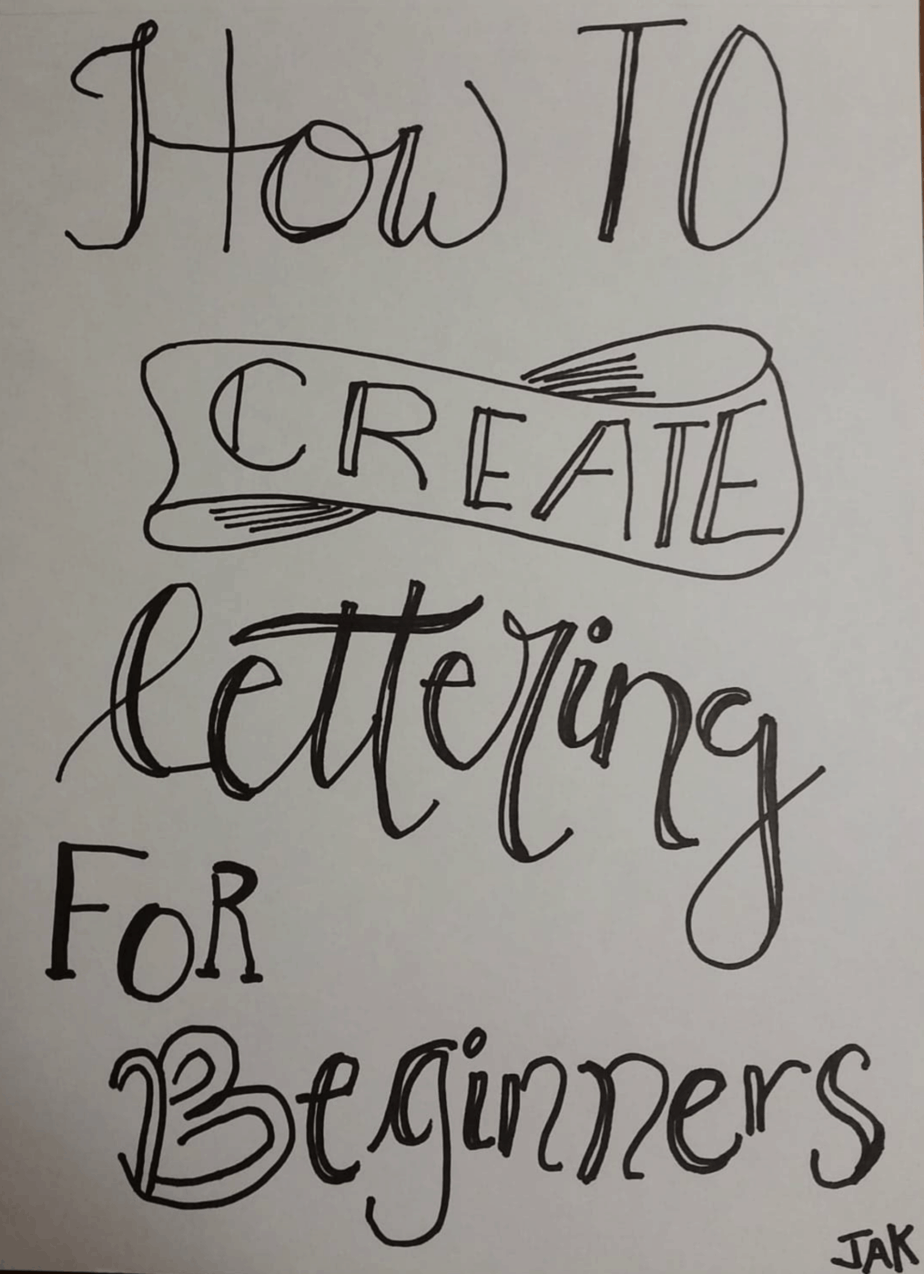 How TO
CREATE
lettering
FoR
Beginners
JAK